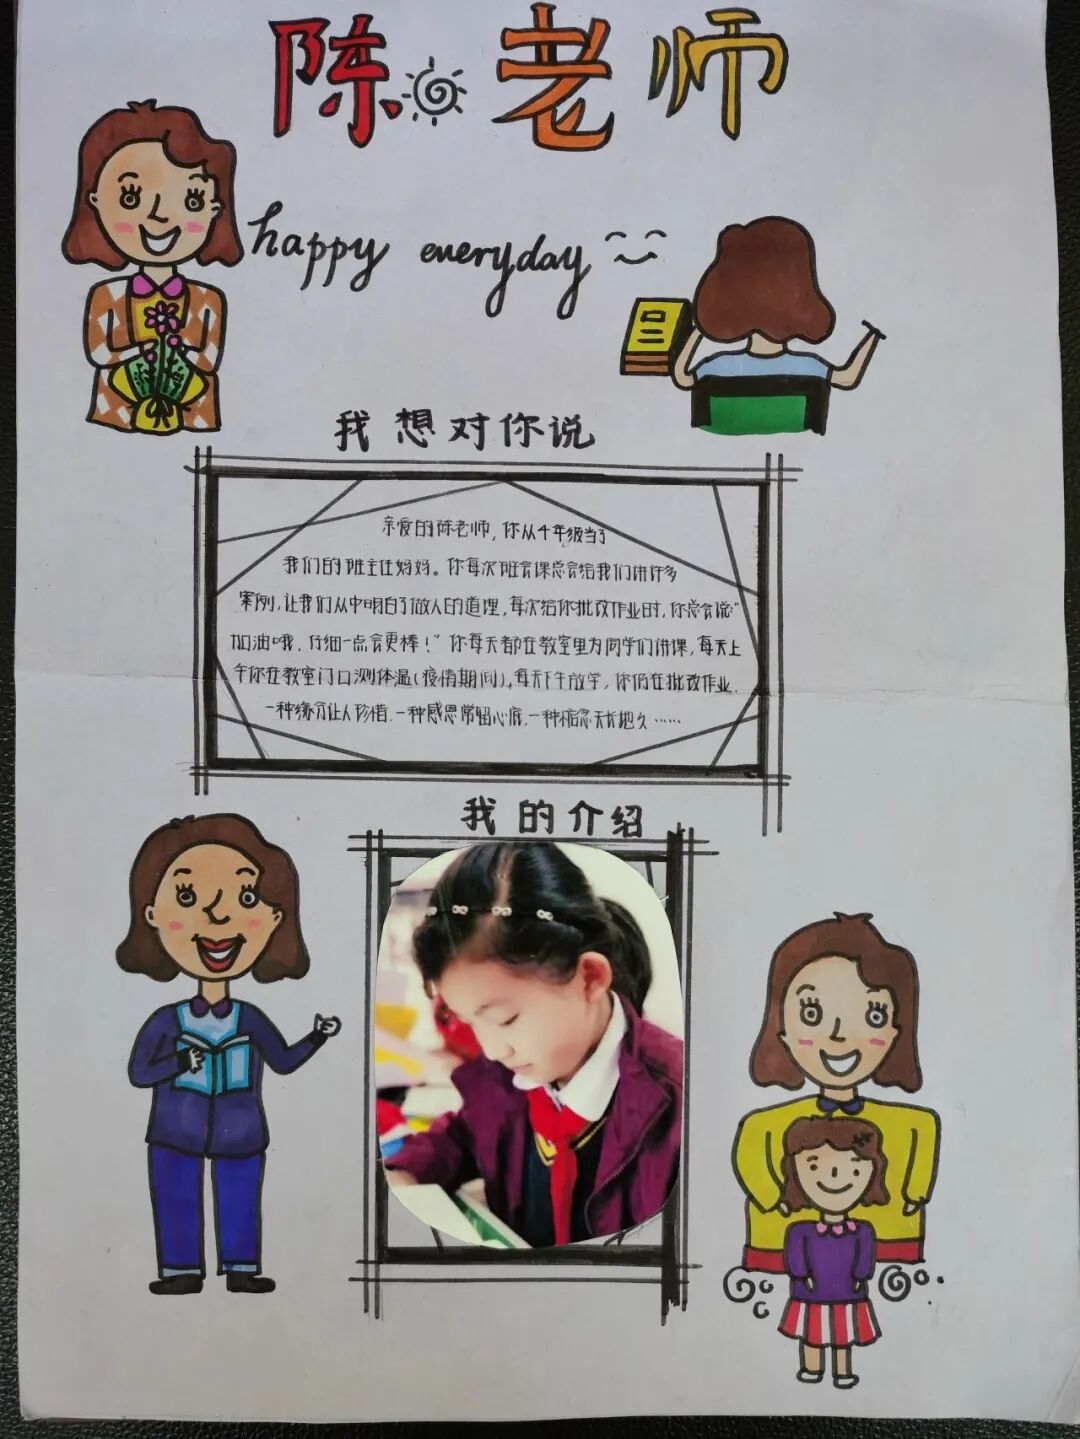 陈老师
happy everyday
我想对你说
亲爱的陈老师，你从十年级当了
我们的班主任妈妈。你每次班会课总会给我们讲许多
案例，让我们从中明白了做人的道理，每次给你批改作业时，你总会说："
加油哦，仔细一点会更棒！"你每天都在教室里为同学们讲课，每天上
午你在教室门口测体温（疫情期间），每天下午放学，你仍在批改作业.
一种缘分让人珍惜，一种感恩常留心底，一种惦念天长地久……
我的介绍